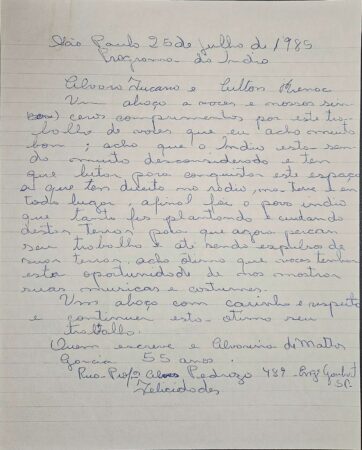 São Paulo 25 de julho de 1985
Programa do Indio
Alvaro Tucano e Ailton Krenac
Um abraço a voces e nossos sin
ceros comprimentos por este tra-
balho de voces que eu acho muito
bom; acho que o Indio esta sen
do muito desconsiderado e tem
que lutar para conquistar este espaço
a que tem direito no radio, na teve e en
todo lugar, afinal foi o povo indio
que tanto fes plantando e cuidando
destas terras para que agora percam
seu trabalho e até sendo expulso de
suas terras, acho otimo que voces tenham
esta oportunidade de nos mostrar
suas musicas e costumes.
Um abaço com carinho e respeito
e continuem este otimo seu
trabalho.
Quem escreve e Alvarina de Mattos
Garcia 55 anos.
Rua Pedrozo 489
Felicidades
SP.